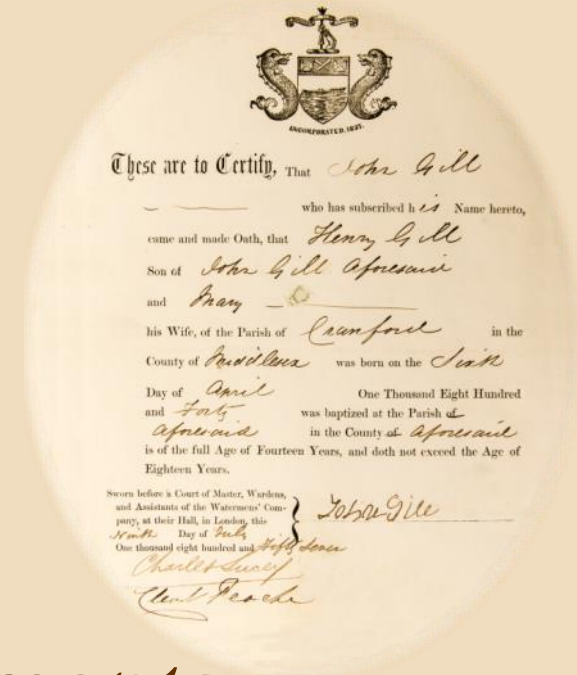 INCORPORATED, 1827.
These are to Certify, That John Gill
who has subscribed his Name hereto,
came and made Oath, that Henry Gill
Son of John Gill Aforesaid
and Mary
his Wife, of the Parish of Cranford in the
County of Middlesex was born on the Sixth
Day of April One Thousand Eight Hundred
and Forty was baptized at the Parish of
Aforesaid in the County of Aforesaid
is of the full Age of Fourteen Years, and doth not exceed the Age of
Eighteen Years.
Sworn before a Court of Master, Wardens,
and Assistants of the Watermens' Com-
pany, at their Hall, in London, this
Ninth Day of July
One thousand eight hundred and Fifty Seven
John Gill
Charles Lucey